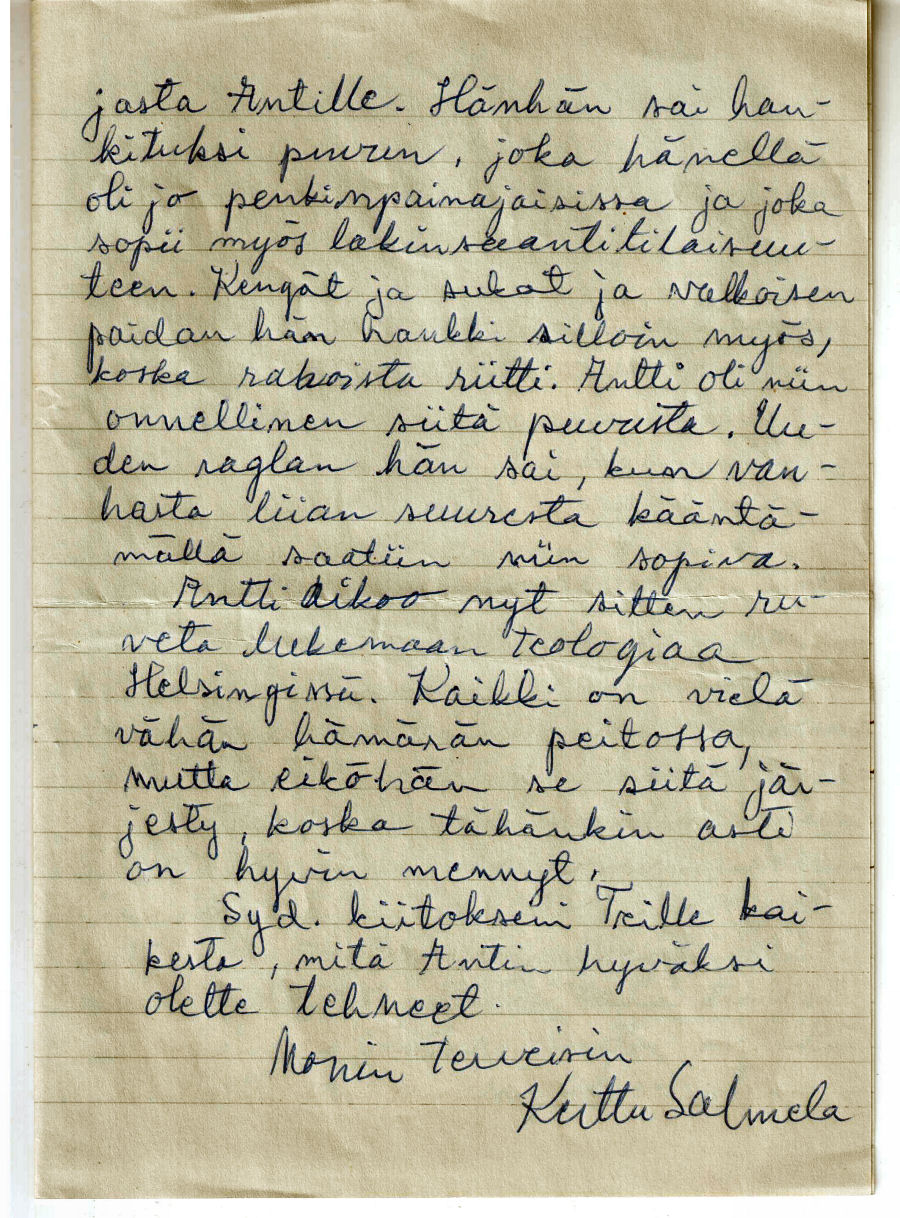 jasta Antille. Hänhän sai han-
kituksi puvun, joka hänellä
oli jo penkinpainajaisissa ja joka
sopii myös lakinsaantitilaisuu-
teen. Kengät ja sukat ja valkoisen
paidan hän hankki silloin myös,
koska rahoista riitti. Antti oli niin
onnellinen siitä puvusta. Uu-
den raglan hän sai, kun van-
hasta liian suuresta kääntä-
mällä saatiin niin sopiva.
Antti aikoo nyt sitten ru-
veta lukemaan teologiaa
Helsingissä. Kaikki on vielä
vähän hämärän peitossa,
mutta eiköhän se siitä jär-
jesty, koska tähänkin asti
on hyvin mennyt.
Syd. kiitokseni Teille kai-
kesta, mitä Antin hyväksi
olette tehneet.
Monin terveisin
Kerttu Salmela